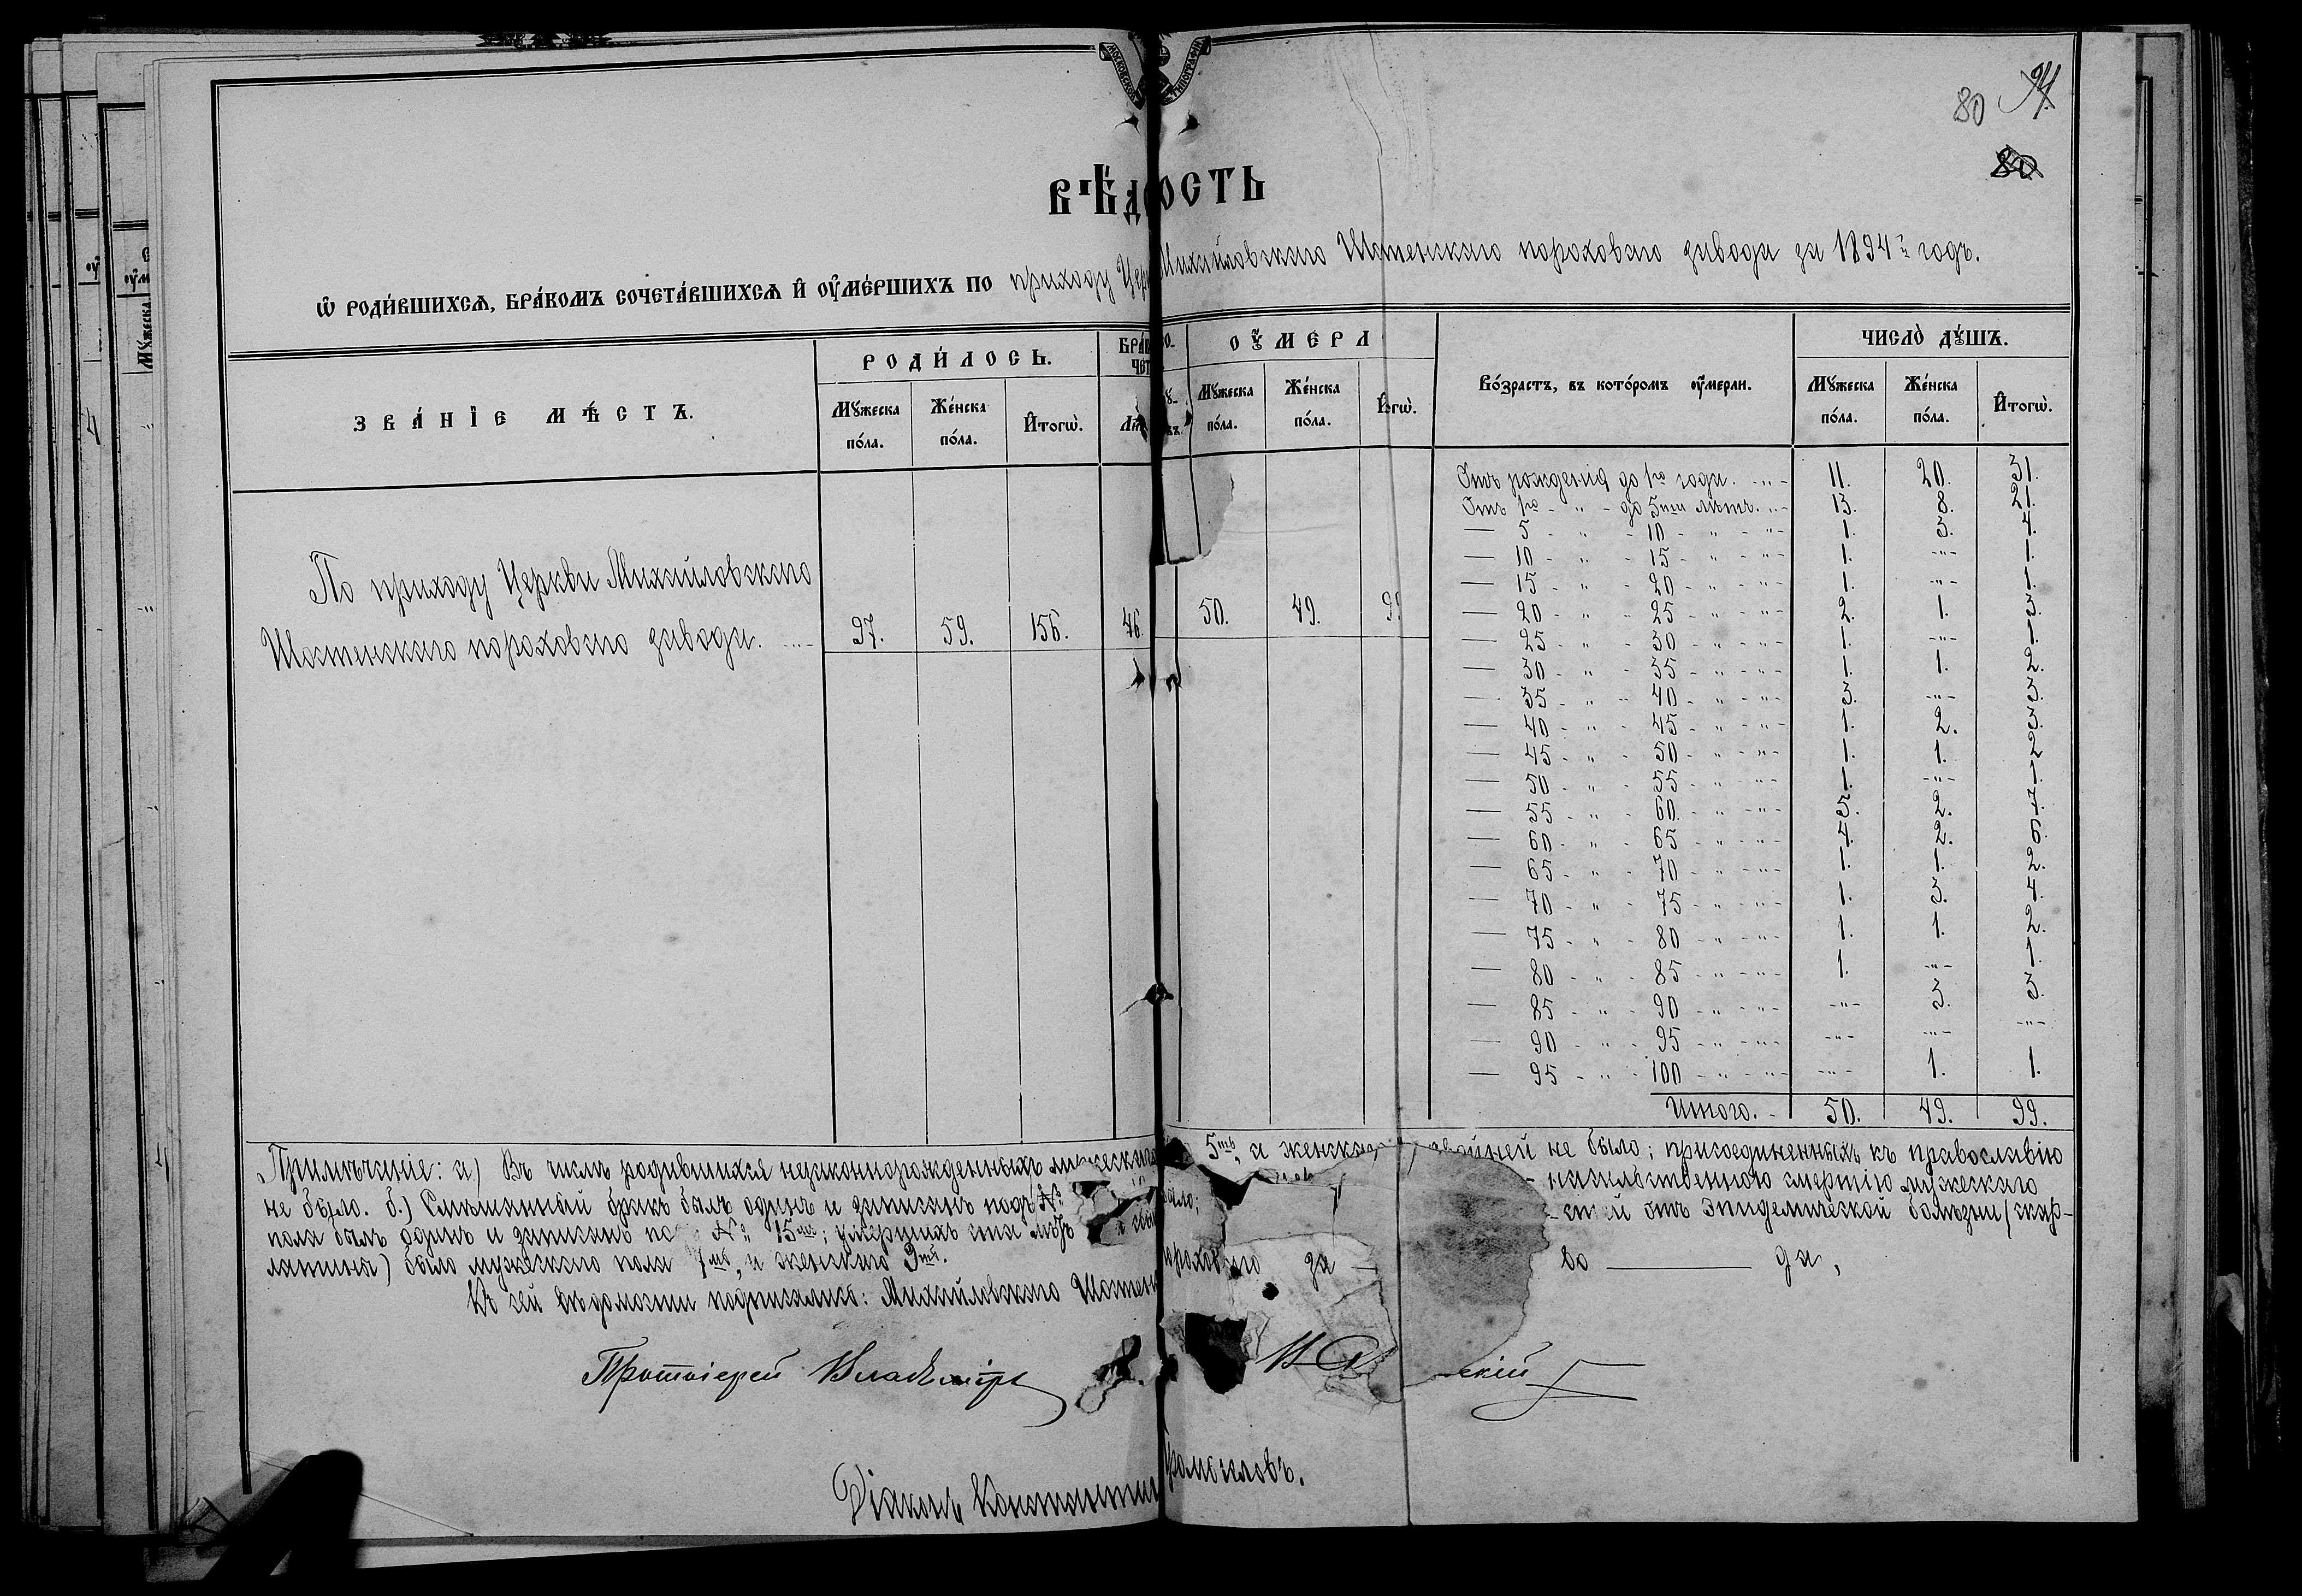 МОСКОВСКОЙ ТИПОГРАФІИ
80 94.
80
ВѢДОСТЬ
Ѡ РОДИ́ВШИХСѦ, БРА́КОМЪ СОЧЕТА́ВШИХСѦ И҆ ОУ҆МЕ́РШИХЪ ПО приходу Цер Михайловскаго Шостенскаго пороховаго завода за 1894й годъ.
ЗВА́НІЕ МѢ́СТЪ.
РОДИ́ЛОСЬ.
Мꙋ́жеска по́ла.
Же́нска по́ла.
И҆тогѡ̀.
ОУ҆МЕРЛ
Мꙋ́жеска по́ла.
Же́нска по́ла.
Во́зрастъ, въ кото́ромъ оу҆́мерли.
ЧИСЛО̀ ДꙊ́ШЪ.
Мꙋ́жеска по́ла.
Же́нска по́ла.
И҆тогѡ̀.
По приходу Церкви Михайловскаго
Шостенскаго пороховаго завода. - " -
97. 59. 156. 46. 50. 49. 99
Отъ рожденія до 1го года. - " - 11. 20. 31.
Отъ 1го - " - до 5ти лѣтъ. " - 13. 8. 21.
— 5 - " - 10 - " - " - 1. 3. 4.
— 10 - " - 15 - " - " - 1. - " - 1.
— 15 - " - 20 - " - " - 1. - " - 1.
— 20 - " - 25 - " - " - 2. 1. 3.
— 25 - " - 30 - " - " - 1. - " - 1.
— 30 - " - 35 - " - " - 1. 1. 2.
— 35 - " - 40 - " - " - 3. - " - 3.
— 40 - " - 45 - " - " - 1. 2. 3.
— 45 - " - 50 - " - " - 1. 1. 2
— 50 - " - 55 - " - " - 1. - " - 1.
— 55 - " - 60 - " - " - 5. 2. 7.
— 60 - " - 65 - " - " - 4. 2. 6.
— 65 - " - 70 - " - " - 1. 1. 2.
— 70 - " - 75 - " - " - 1. 3. 4.
— 75 - " - 80 - " - " - 1. 1. 2.
— 80 - " - 85 - " - " - 1. - " - 1.
— 85 - " - 90 - " - " - - " - 3. 3.
— 90 - " - 95 - " - " - - " - - " - - " -
— 95 - " - 100 - " - " - - " - 1. 1.
Итого. - 50. 49. 99.
Примѣчаніе: а) Въ числѣ родившихся незаконнорожденныхъ мужескаго 5ть, а женскаго двойней не было; присоединенныхъ къ православію
не было. б.) Смѣшанный бракъ былъ одинъ и записанъ подъ № было; насильственною смертію мужескаго
пола былъ одинъ и записанъ по № 15мъ; умершихъ отъ эпидемической болѣзни (скар-
латина) было мужескаго пола 7мь, и женскаго 9ть.
Къ сей вѣдомости подписались: Михайловскаго Шостен пороховаго за во да,
Протоіерей Владиміръ скій
Діаконъ Константин